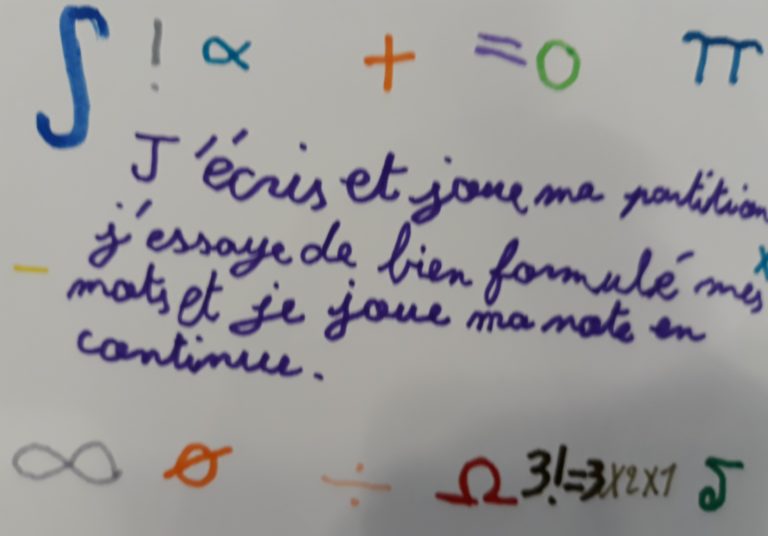 ∫ ! α + = 0 π
J'écris et joue ma partition
j'essaye de bien formulé mes x
- mots et je joue ma note en
continue.
∞ ø ÷ Ω 3!=3x2x1 δ